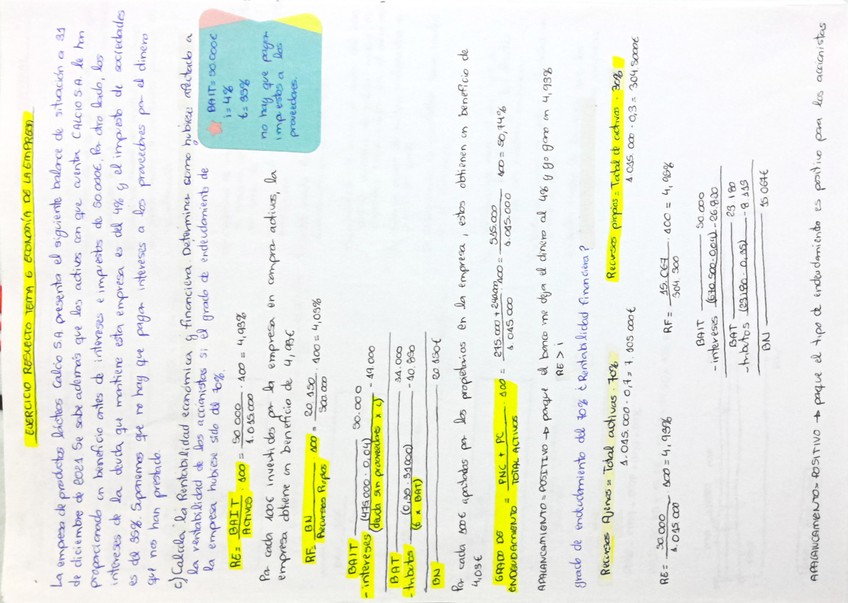 EJERCICIO RESUELTO TEMA 6 ECONOMÍA DE LA EMPRESA
La empresa de productos lácteos Calcio S.A presenta el siguiente balance de situación a 31
de diciembre de 2021. Se sabe además que los activos con que cuenta CALCIO S.A. le han
proporcionado un beneficio antes de intereses e impuestos de 50.000€. Por otro lado, los
intereses de la deuda que mantiene esta empresa es del 4% y el impuesto de sociedades
es del 35%. Suponemos que no hay que pagar intereses a los proveedores por el dinero
que nos han prestado.
c) Calcula la Rentabilidad económica y financiera. Determine como hubiese afectado a
la rentabilidad de los accionistas si el grado de endeudamiento de
la empresa hubiese sido del 70%.
BAIT = 50.000€
i = 4%
t = 35%
no hay que pagar
impuestos a los
proveedores.
RE = BAIT / ACTIVOS · 100 = 50.000 / 1.015.000 · 100 = 4,93%
Por cada 100€ invertidos por la empresa en comprar activos, la
empresa obtiene un beneficio de 4,93€
RF = BN / Recursos Propios · 100 = 20.150 / 50.000 · 100 = 4,03%
BAIT 50.000
- intereses (475.000 · 0,04) - 19.000
(deuda sin proveedores × i)
BAT 31.000
- tributos (0,35 · 31000) - 10.850
(t × BAT)
BN 20.150€
Por cada 100€ aportados por los propietarios en la empresa, estos obtienen un beneficio de
4,03€
GRADO DE ENDEUDAMIENTO = PNC + PC / TOTAL ACTIVOS · 100 = 275.000 + 240.000 / 1.015.000 · 100 = 515.000 / 1.015.000 · 100 = 50,74%
APALANCAMIENTO = POSITIVO → porque el banco me deja el dinero al 4% y yo gano un 4,93%
RE > i
grado de endeudamiento del 70% ¿Rentabilidad financiera?
Recursos Ajenos = Total activos · 70%
1.015.000 · 0,7 = 1.105.000€
Recursos propios = Total de activos · 30%
1.015.000 · 0,3 = 304.500€
RE = 50.000 / 1.015.000 · 100 = 4,93%
RF = 15.067 / 304.500 · 100 = 4,95%
BAIT 50.000
- intereses (670.500 · 0,04) - 26.820
BAT 23.180
- tributos (23.180 · 0,35) - 8.113
BN 15.067€
APALANCAMIENTO = POSITIVO → porque el tipo de endeudamiento es positivo para los accionistas